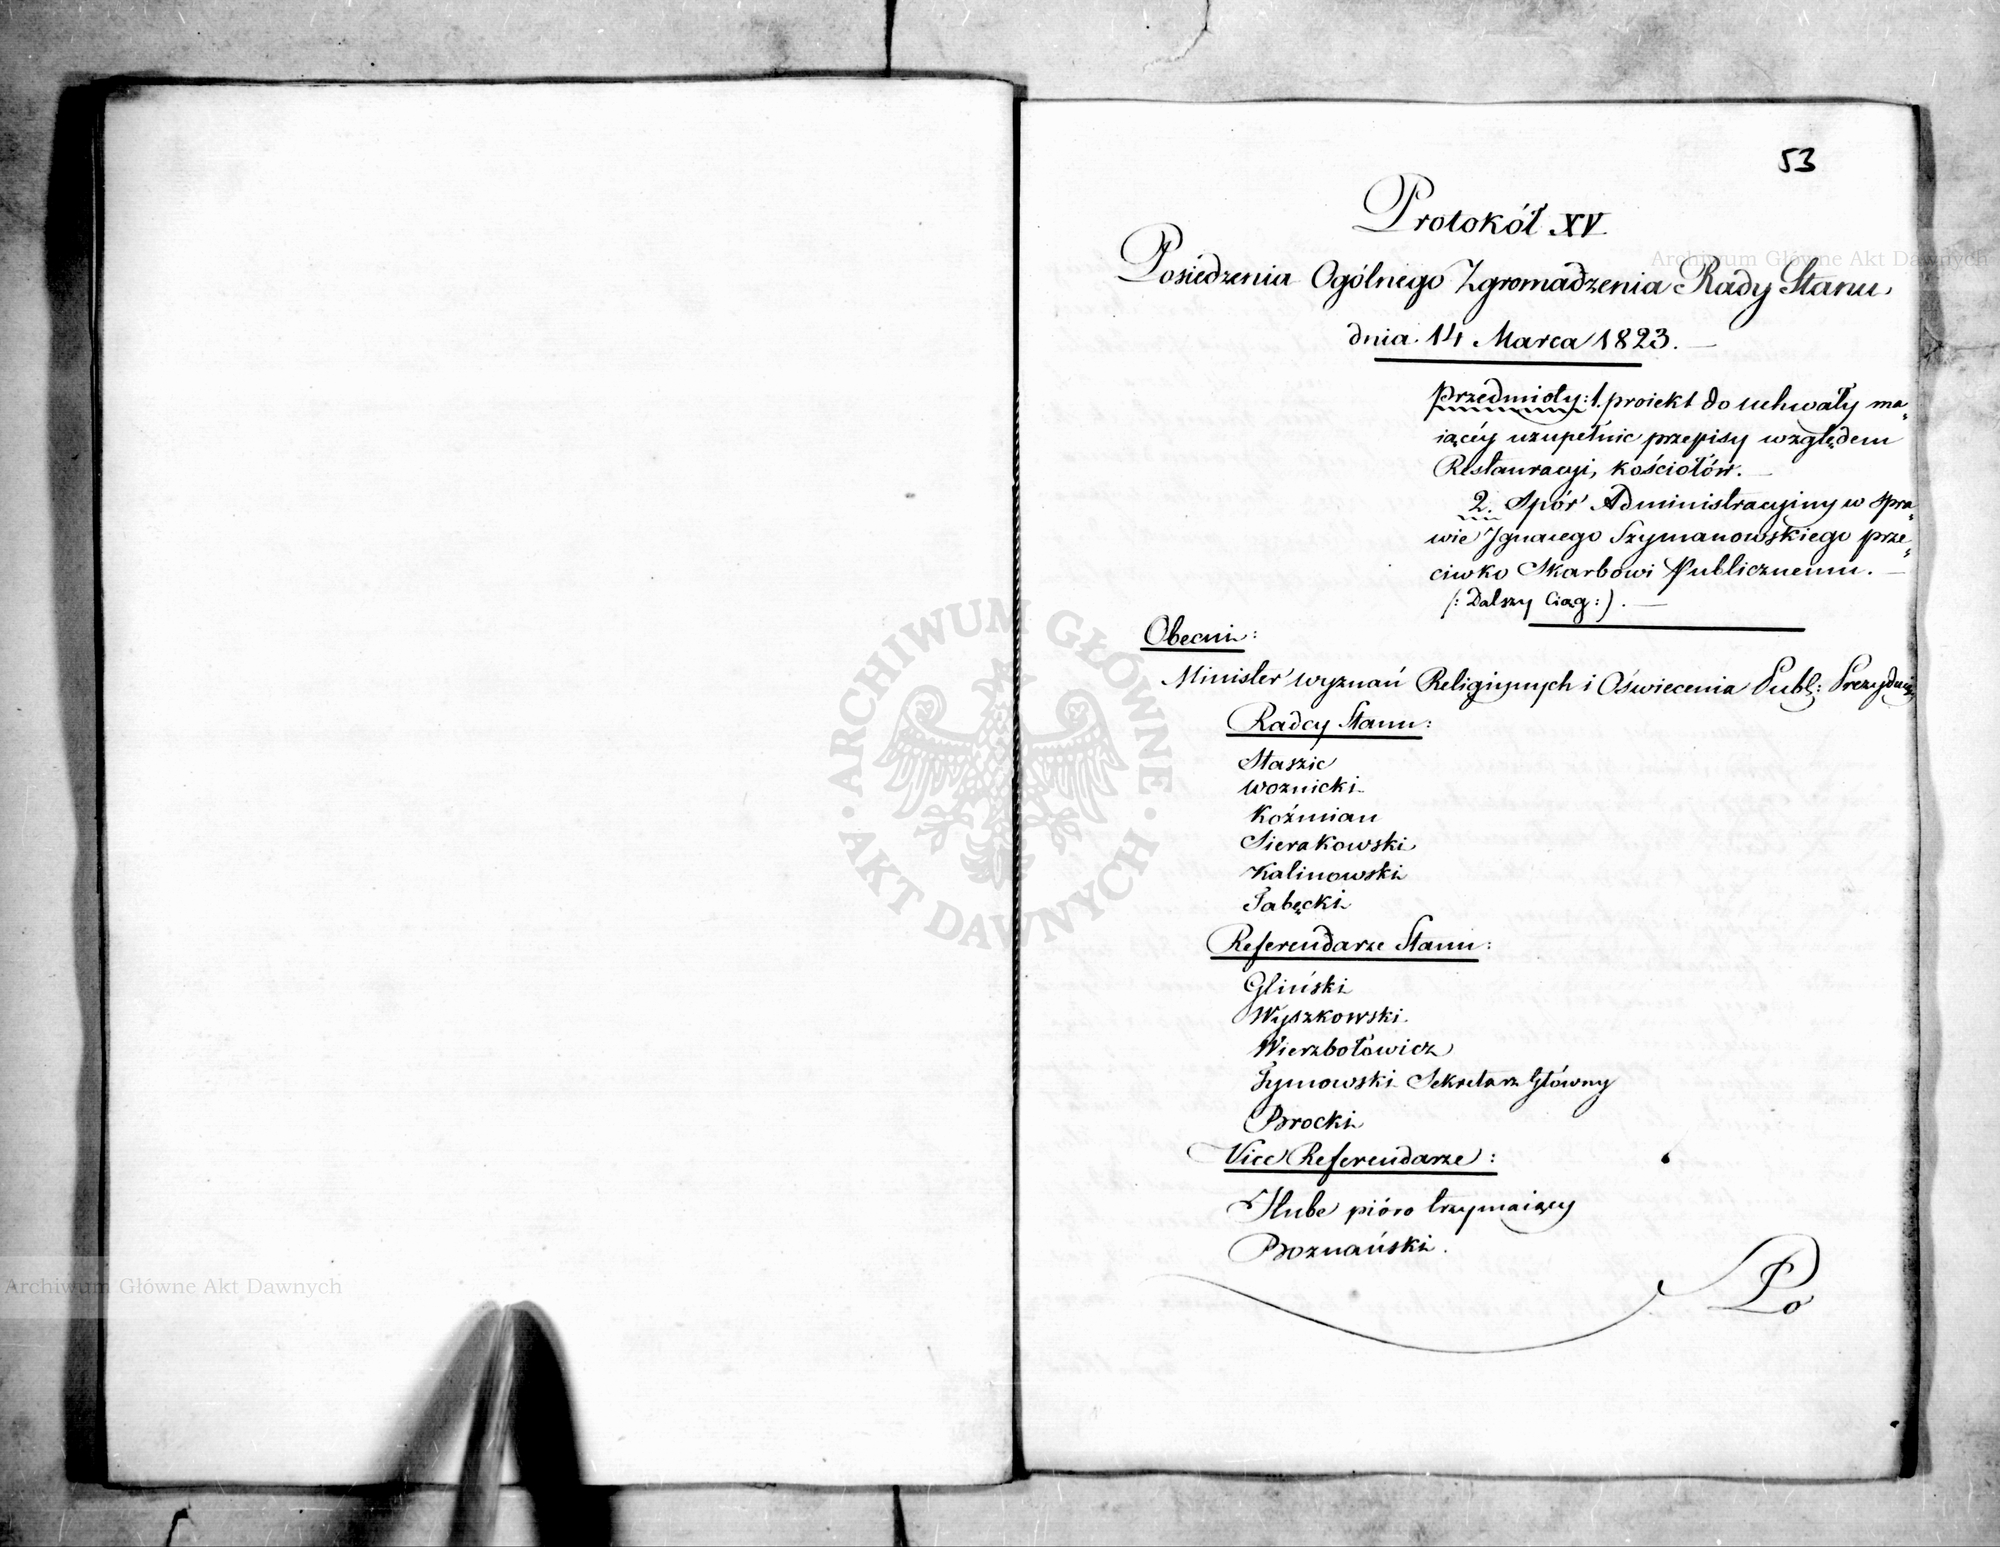 53
Protokół XV.
Posiedzenia Ogólnego Zgromadzenia Rady Stanu
dnia 14 Marca 1823. —
Przedmioty: 1. proiekt do uchwały ma„
iącéy uzupełnić przepisy względem
Restauracyi, kościołów. —
2. Spór Administracyiny w spra„
wie Ignacego Szymanowskiego prze„
ciwko Skarbowi Publicznemu. —
/: Dalszy Ciąg :) . —
Obecni:
Minister wyznań Religiynych i Oświecenia Publ:
Radcy Stanu:
Staszic
Woznicki
Koźmian
Sierakowski
Kalinowski
Łabęcki
Referendarze Stanu:
Gliński
Wyszkowski
Wierzbołowicz
Tymowski Sekretarz Główny
Brocki
Vice Referendarze:
Hube pióro trzymaiący
Poznański.
Po
Archiwum Główne Akt Dawnych
Archiwum Główne Akt Dawnych
ARCHIWUM GŁÓWNE
AKT DAWNYCH